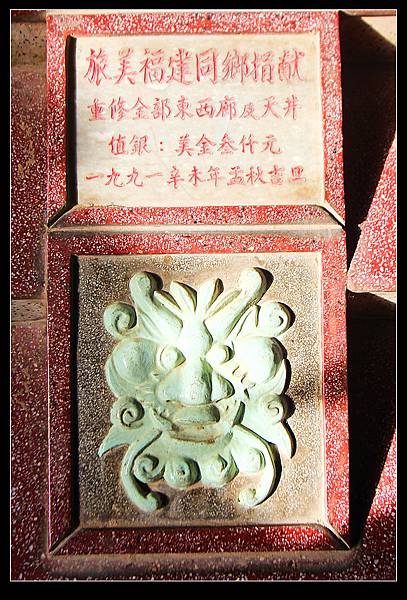 旅美福建同鄉捐献
重修全部東西廊及天井
值銀：美金叁仟元
一九九一辛未年孟秋吉旦